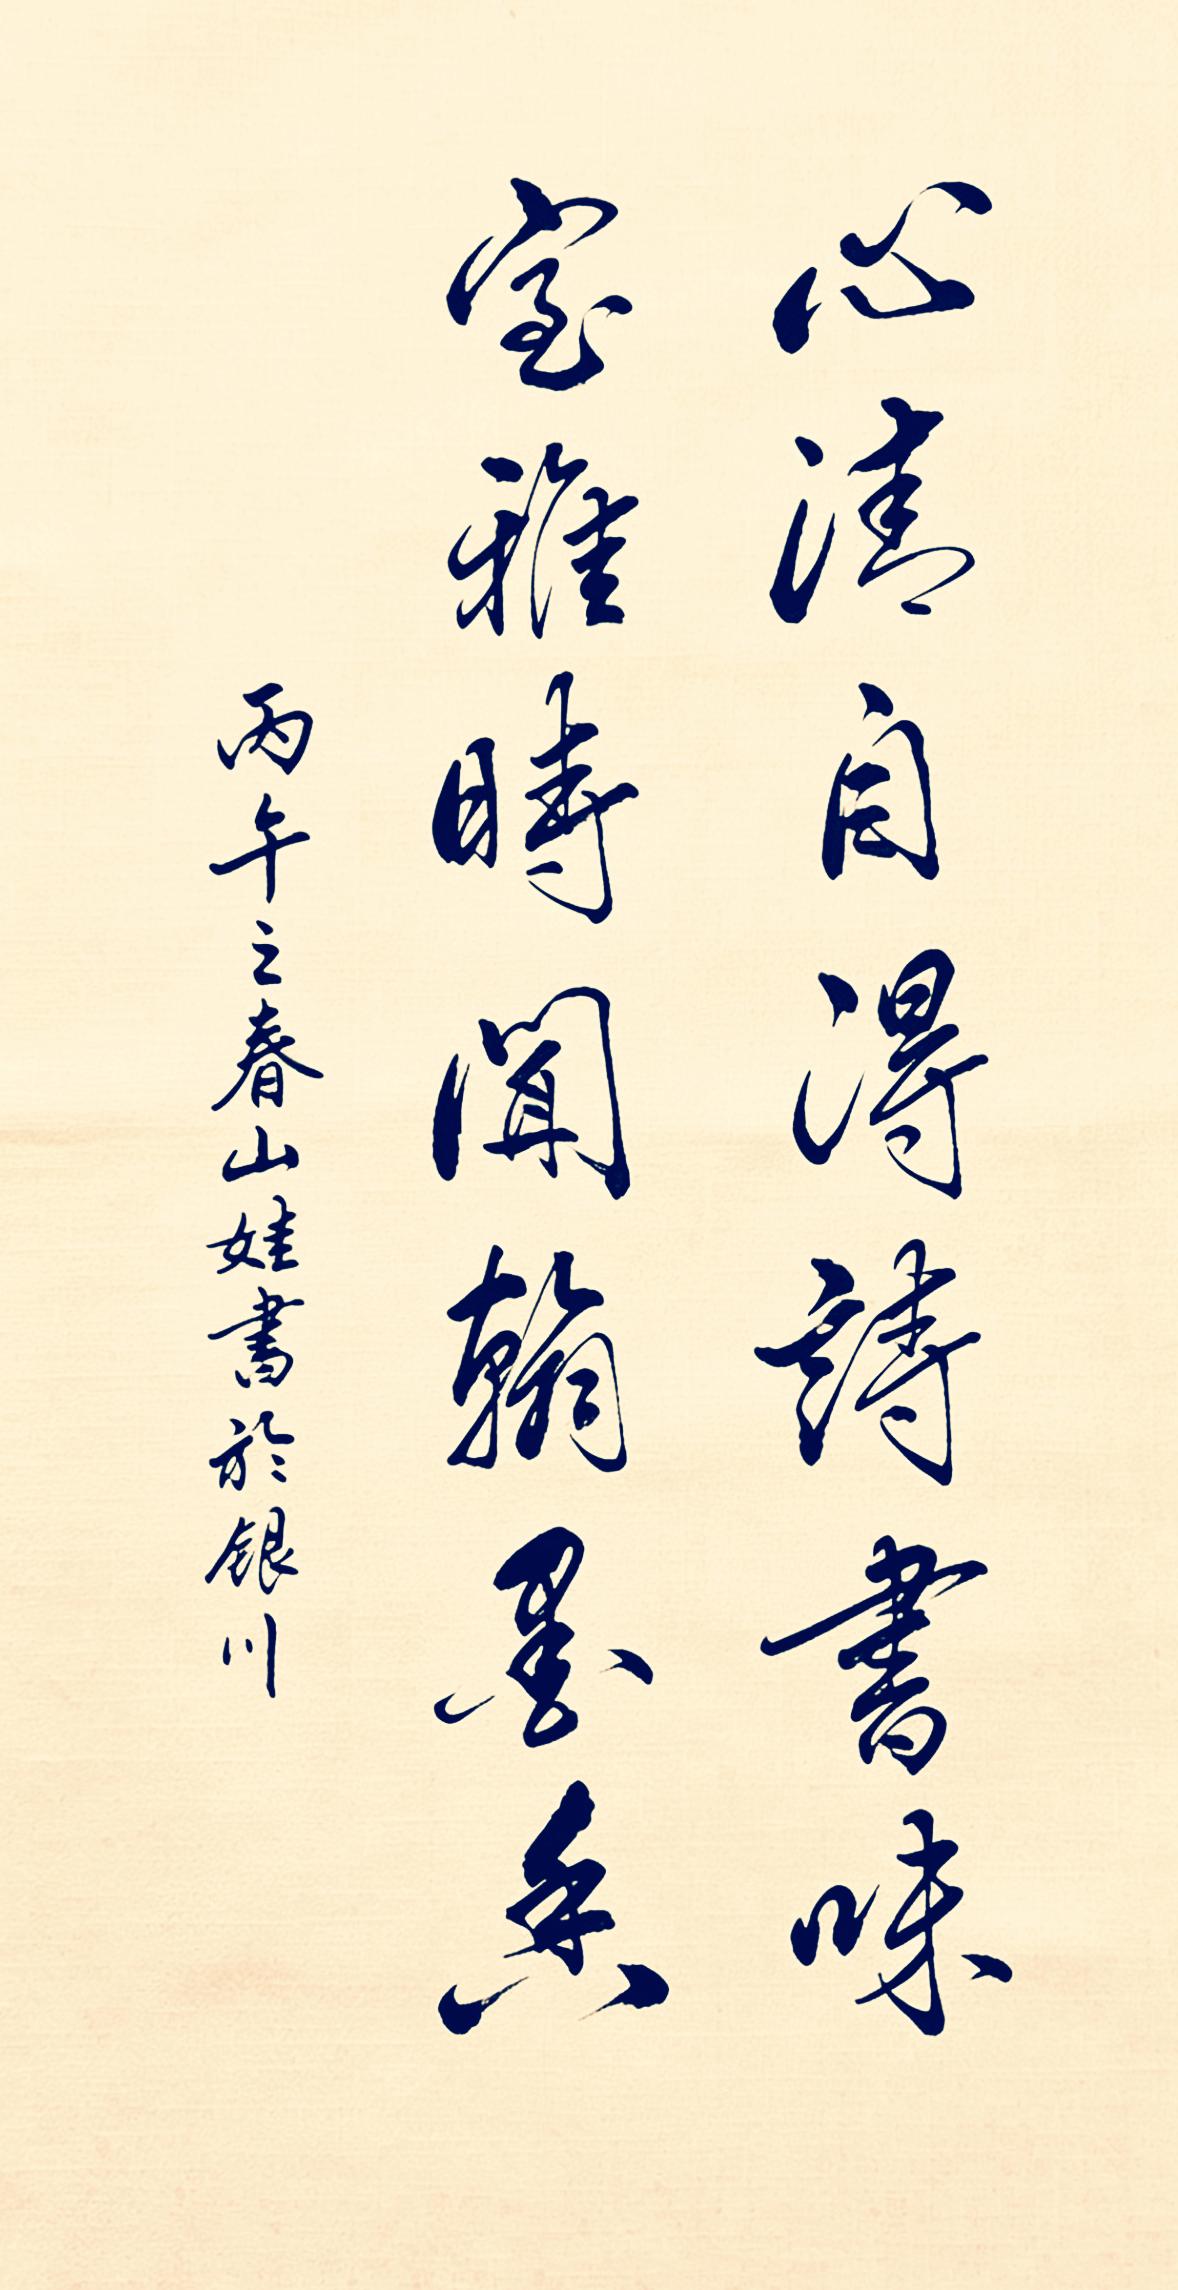 心清自得詩書味
室雅時聞翰墨香
丙午之春山娃書於銀川